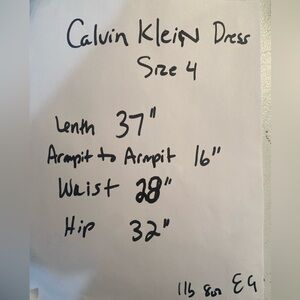 Calvin Klein Dress
Size 4
Lenth 37"
Armpit to Armpit 16"
Waist 28"
Hip 32"
1lb 8oz EG